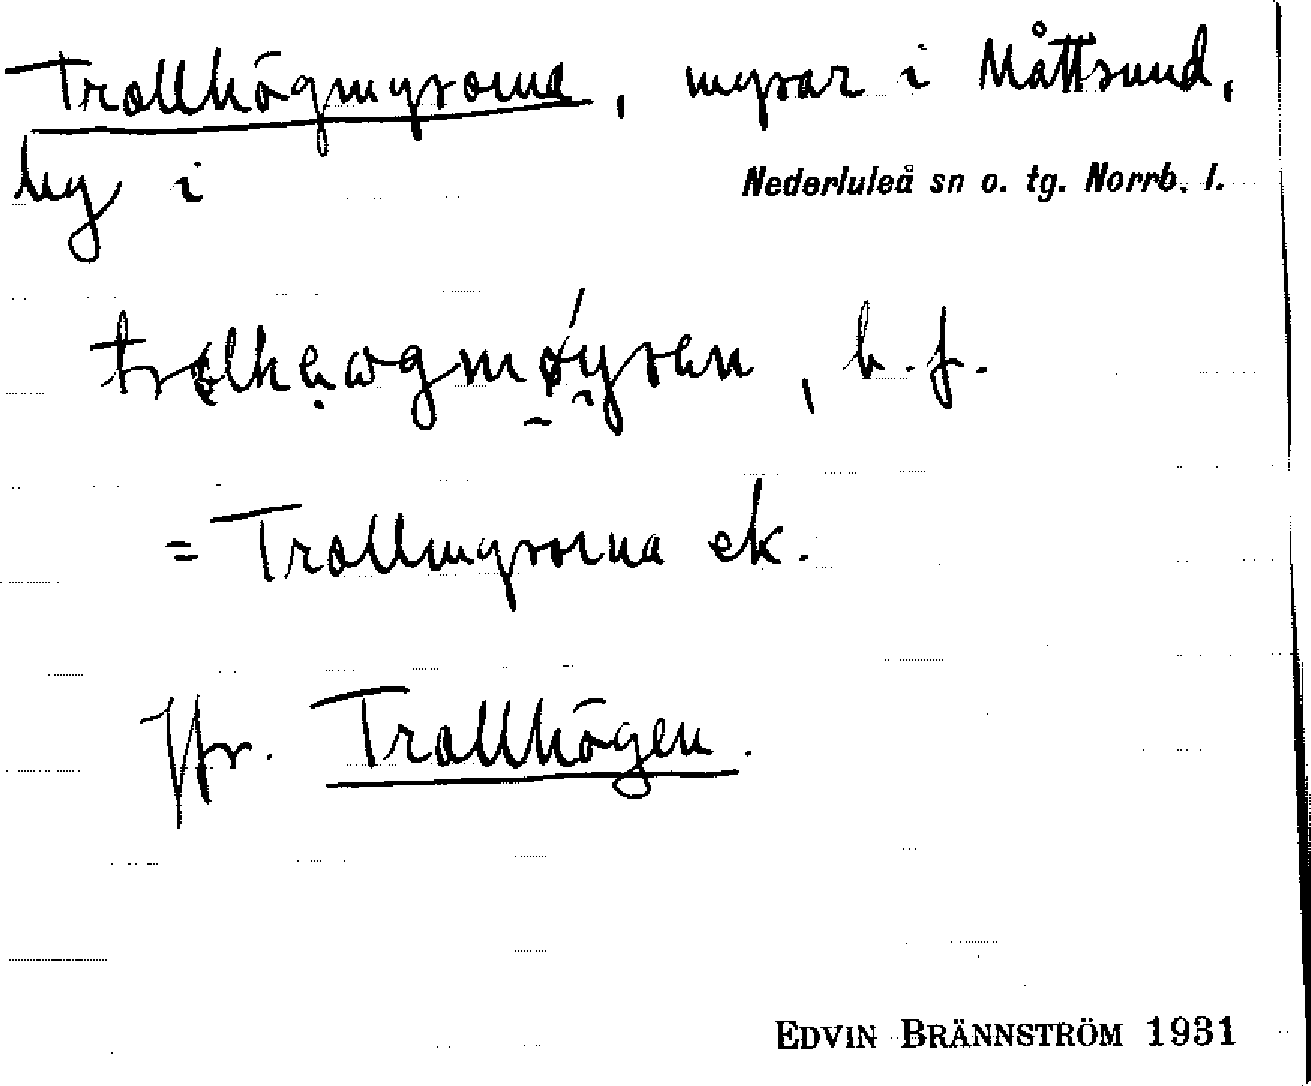 Trollhögmyrorna, myrar i Måttsund,
by i
Nederluleå sn o. tg. Norrb. l.
b. f.
= Trollmyrorna ek.
Jfr. Trollhögen.
EDVIN BRÄNNSTRÖM 1931